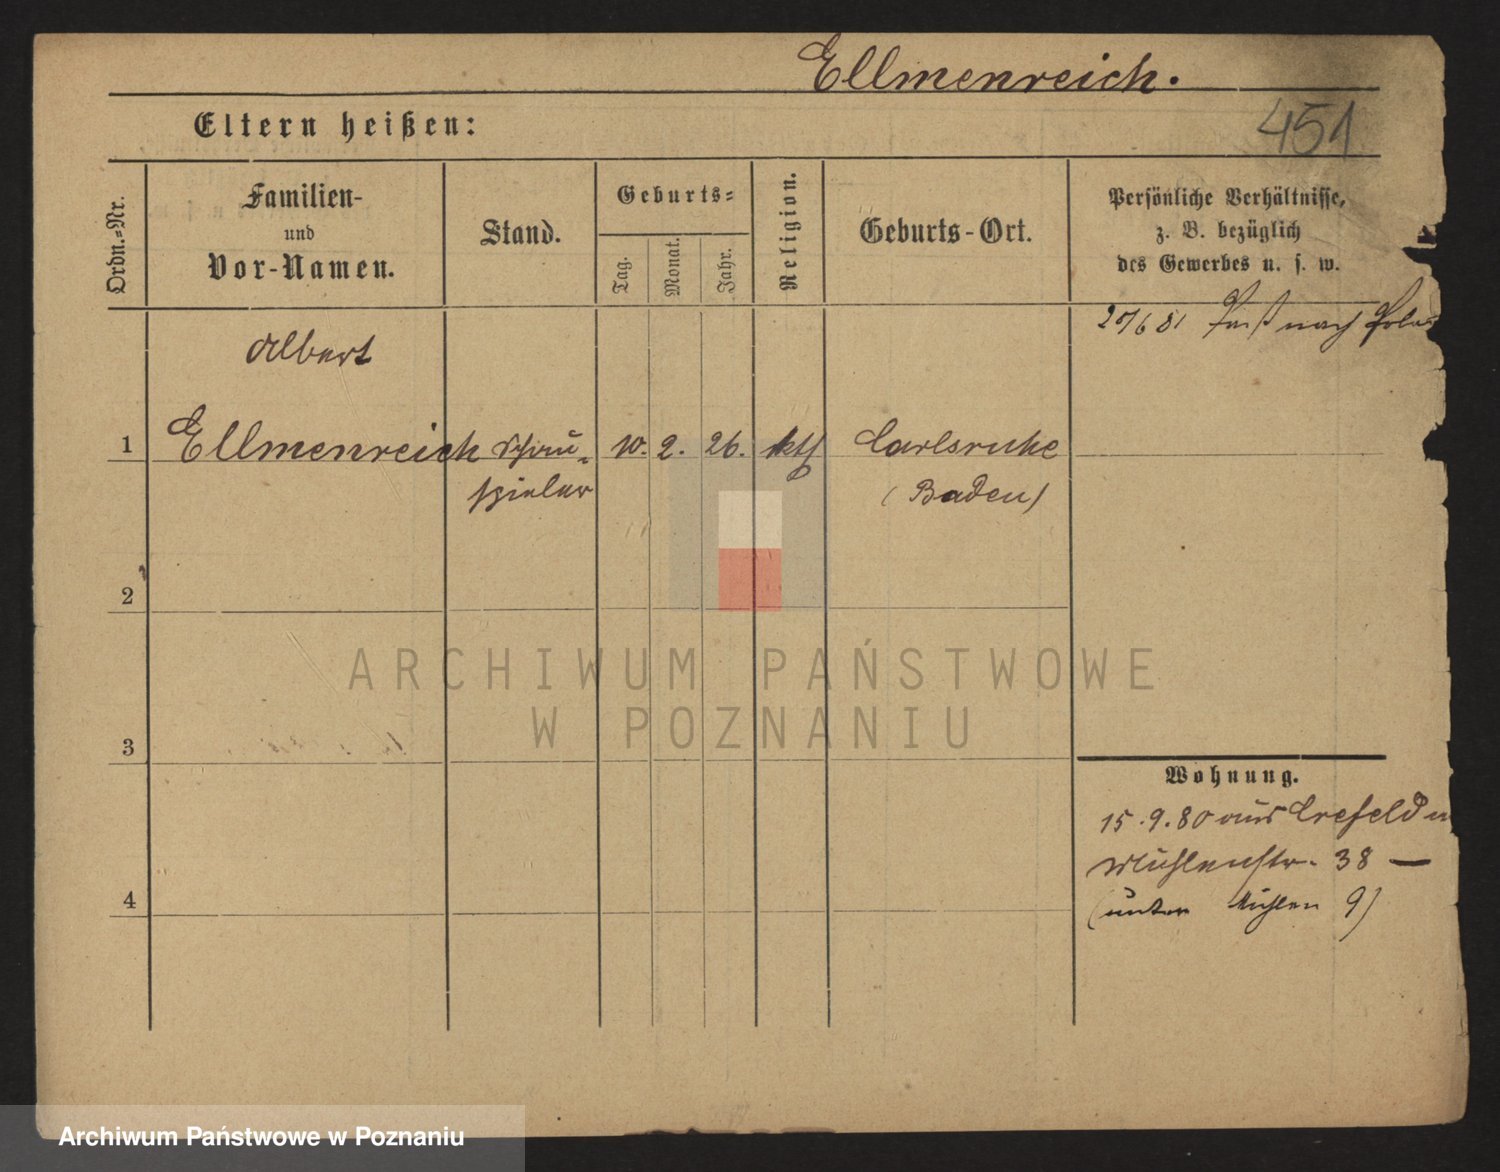 Ellmenreich.
451
Eltern heißen:
Ordn.=Nr.
Familien-
und
Vor-Namen.
Stand.
Geburts=
Tag.
Monat.
Jahr.
Religion.
Geburts-Ort.
Persönliche Verhältnisse,
z. B. bezüglich
des Gewerbes u. s. w.
Paß nach
Albert
1
Ellmenreich
Schau-
spieler
10.
2.
26.
kth
Carlsruhe
(Baden)
2
3
4
Wohnung.
15.9.80 aus Crefeld
Mühlenstr. 38 —
(unter Mühlen 9)
ARCHIWUM PAŃSTWOWE
W POZNANIU
Archiwum Państwowe w Poznaniu